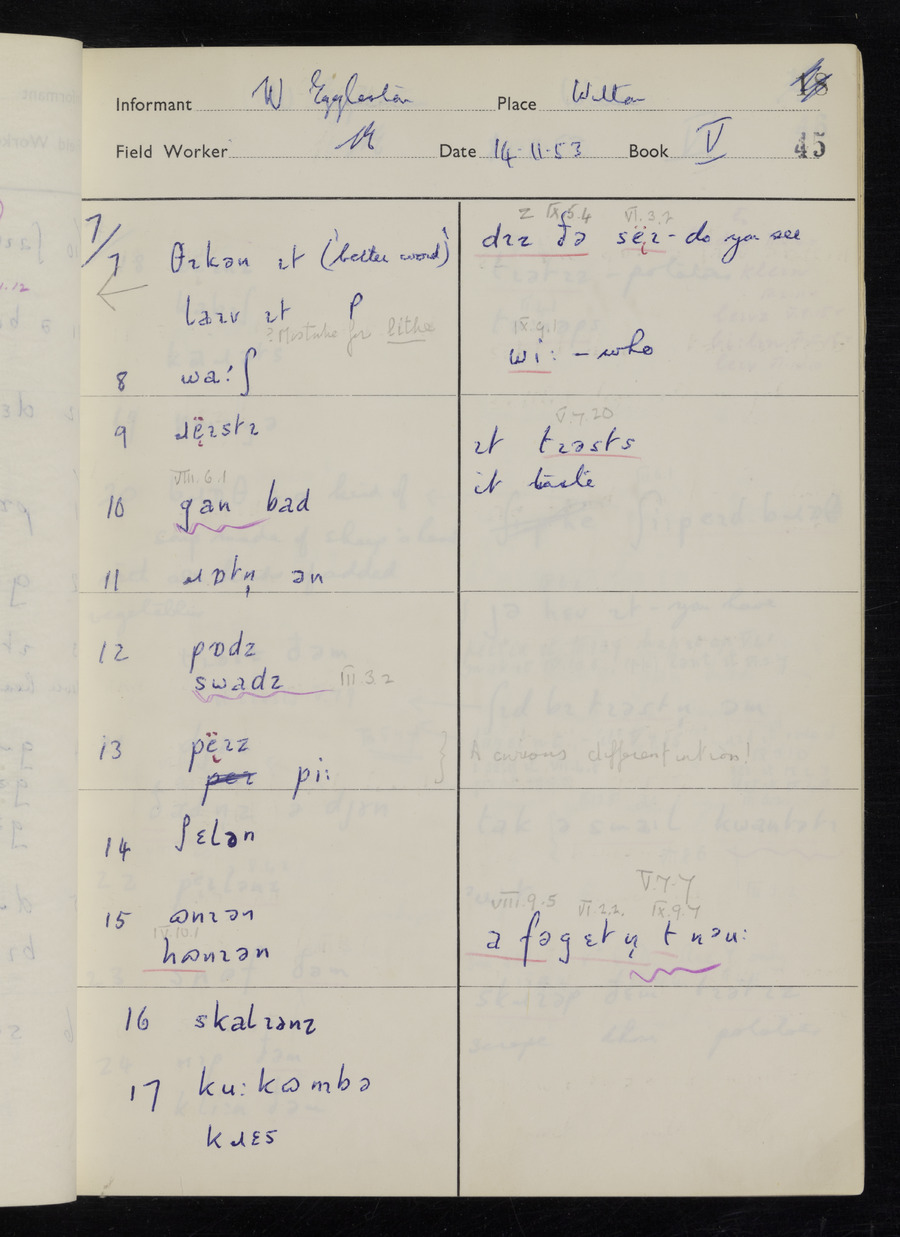 Informant W Eggleston Place Wilton 18
Field Worker Date 14-11-53 Book V 45
7/
7 θɪkən ɪt (better word)
laɪv ɪt P
? Mistake for lithe
8 wa:ʃ
9 ɹëɪstɪ
VIII.6.1
10 gan bad
11 ɹɒtn̩ ən
12 pɒdz
swadz III.3.2
13 pëɪz
peɪ pi:
14 ʃɛlən
15 ɷnɪən
IV.10.1
hɷnɪən
16 skalɪənz
17 ku:kɷmbə
kɹɛs
IX.5.4 VI.3.2
dɪz ðə sëɪ - do you see
IX.9.1
wi: - who
V.7.20
ɪt tɪəsts
it taste
A curious differentiation!
V.7.7
VIII.9.5 VI.2.2. IX.9.7
a fəgɛtn̩ t nəu: